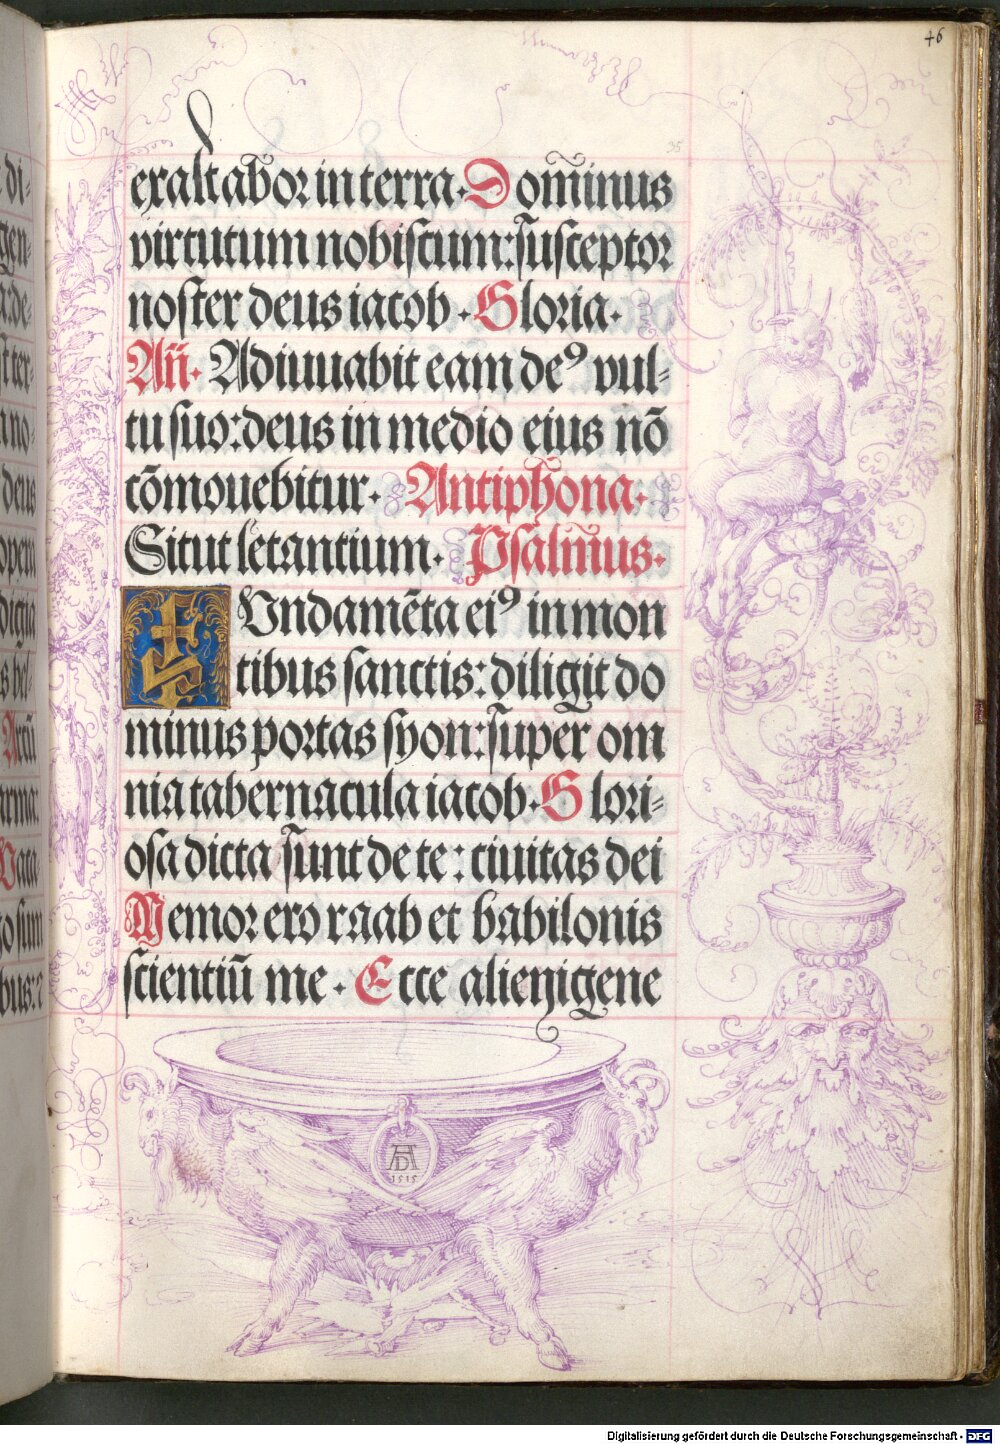 46
35
exaltabor in terra. Dom̄inus
virtutum nobiscum: susceptor
noster deus iacob. Gloria.
Añ. Adiuuabit eam deꝰ vul-
tu suo: deus in medio eius nō
cōmouebitur. Antiphona.
Sicut letantium. Psalmus.
FVndamēta eiꝰ in mon
tibus sanctis: diligit do
minus portas syon: super om
nia tabernacula iacob. Glori-
osa dicta sunt de te: ciuitas dei
Memor ero raab et babilonis
scientiū me. Ecce alienigene
AD
1515
Digitalisierung gefördert durch die Deutsche Forschungsgemeinschaft - DFG